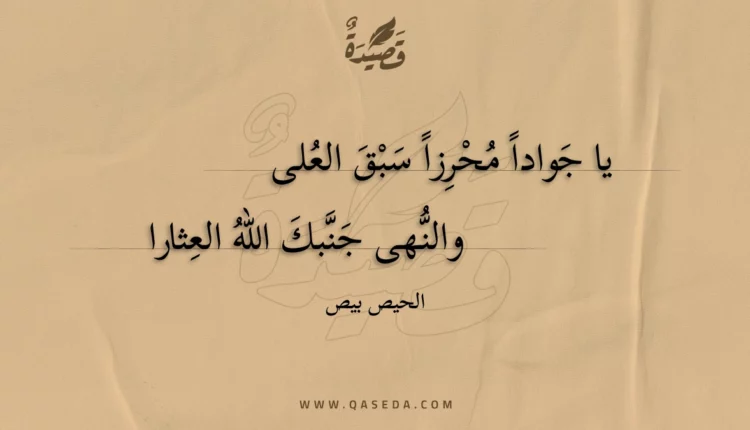 قَصِيْدَةٌ
يا جَواداً مُحْرِزاً سَبْقَ العُلى
والنُّهى جَنَّبكَ اللهُ العِثارا
الحيص بيص
WWW.QASEDA.COM